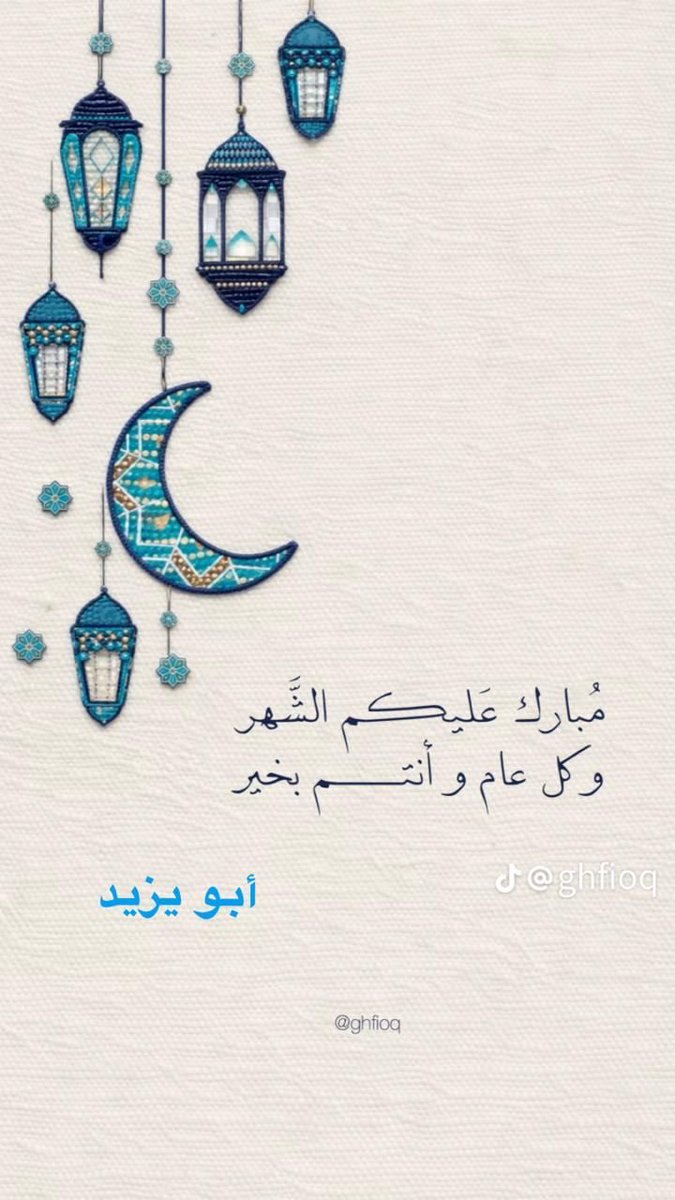 مُبارك عَليكم الشَّهر
وكل عام و أنتم بخير
@ghfioq
أبو يزيد
@ghfioq